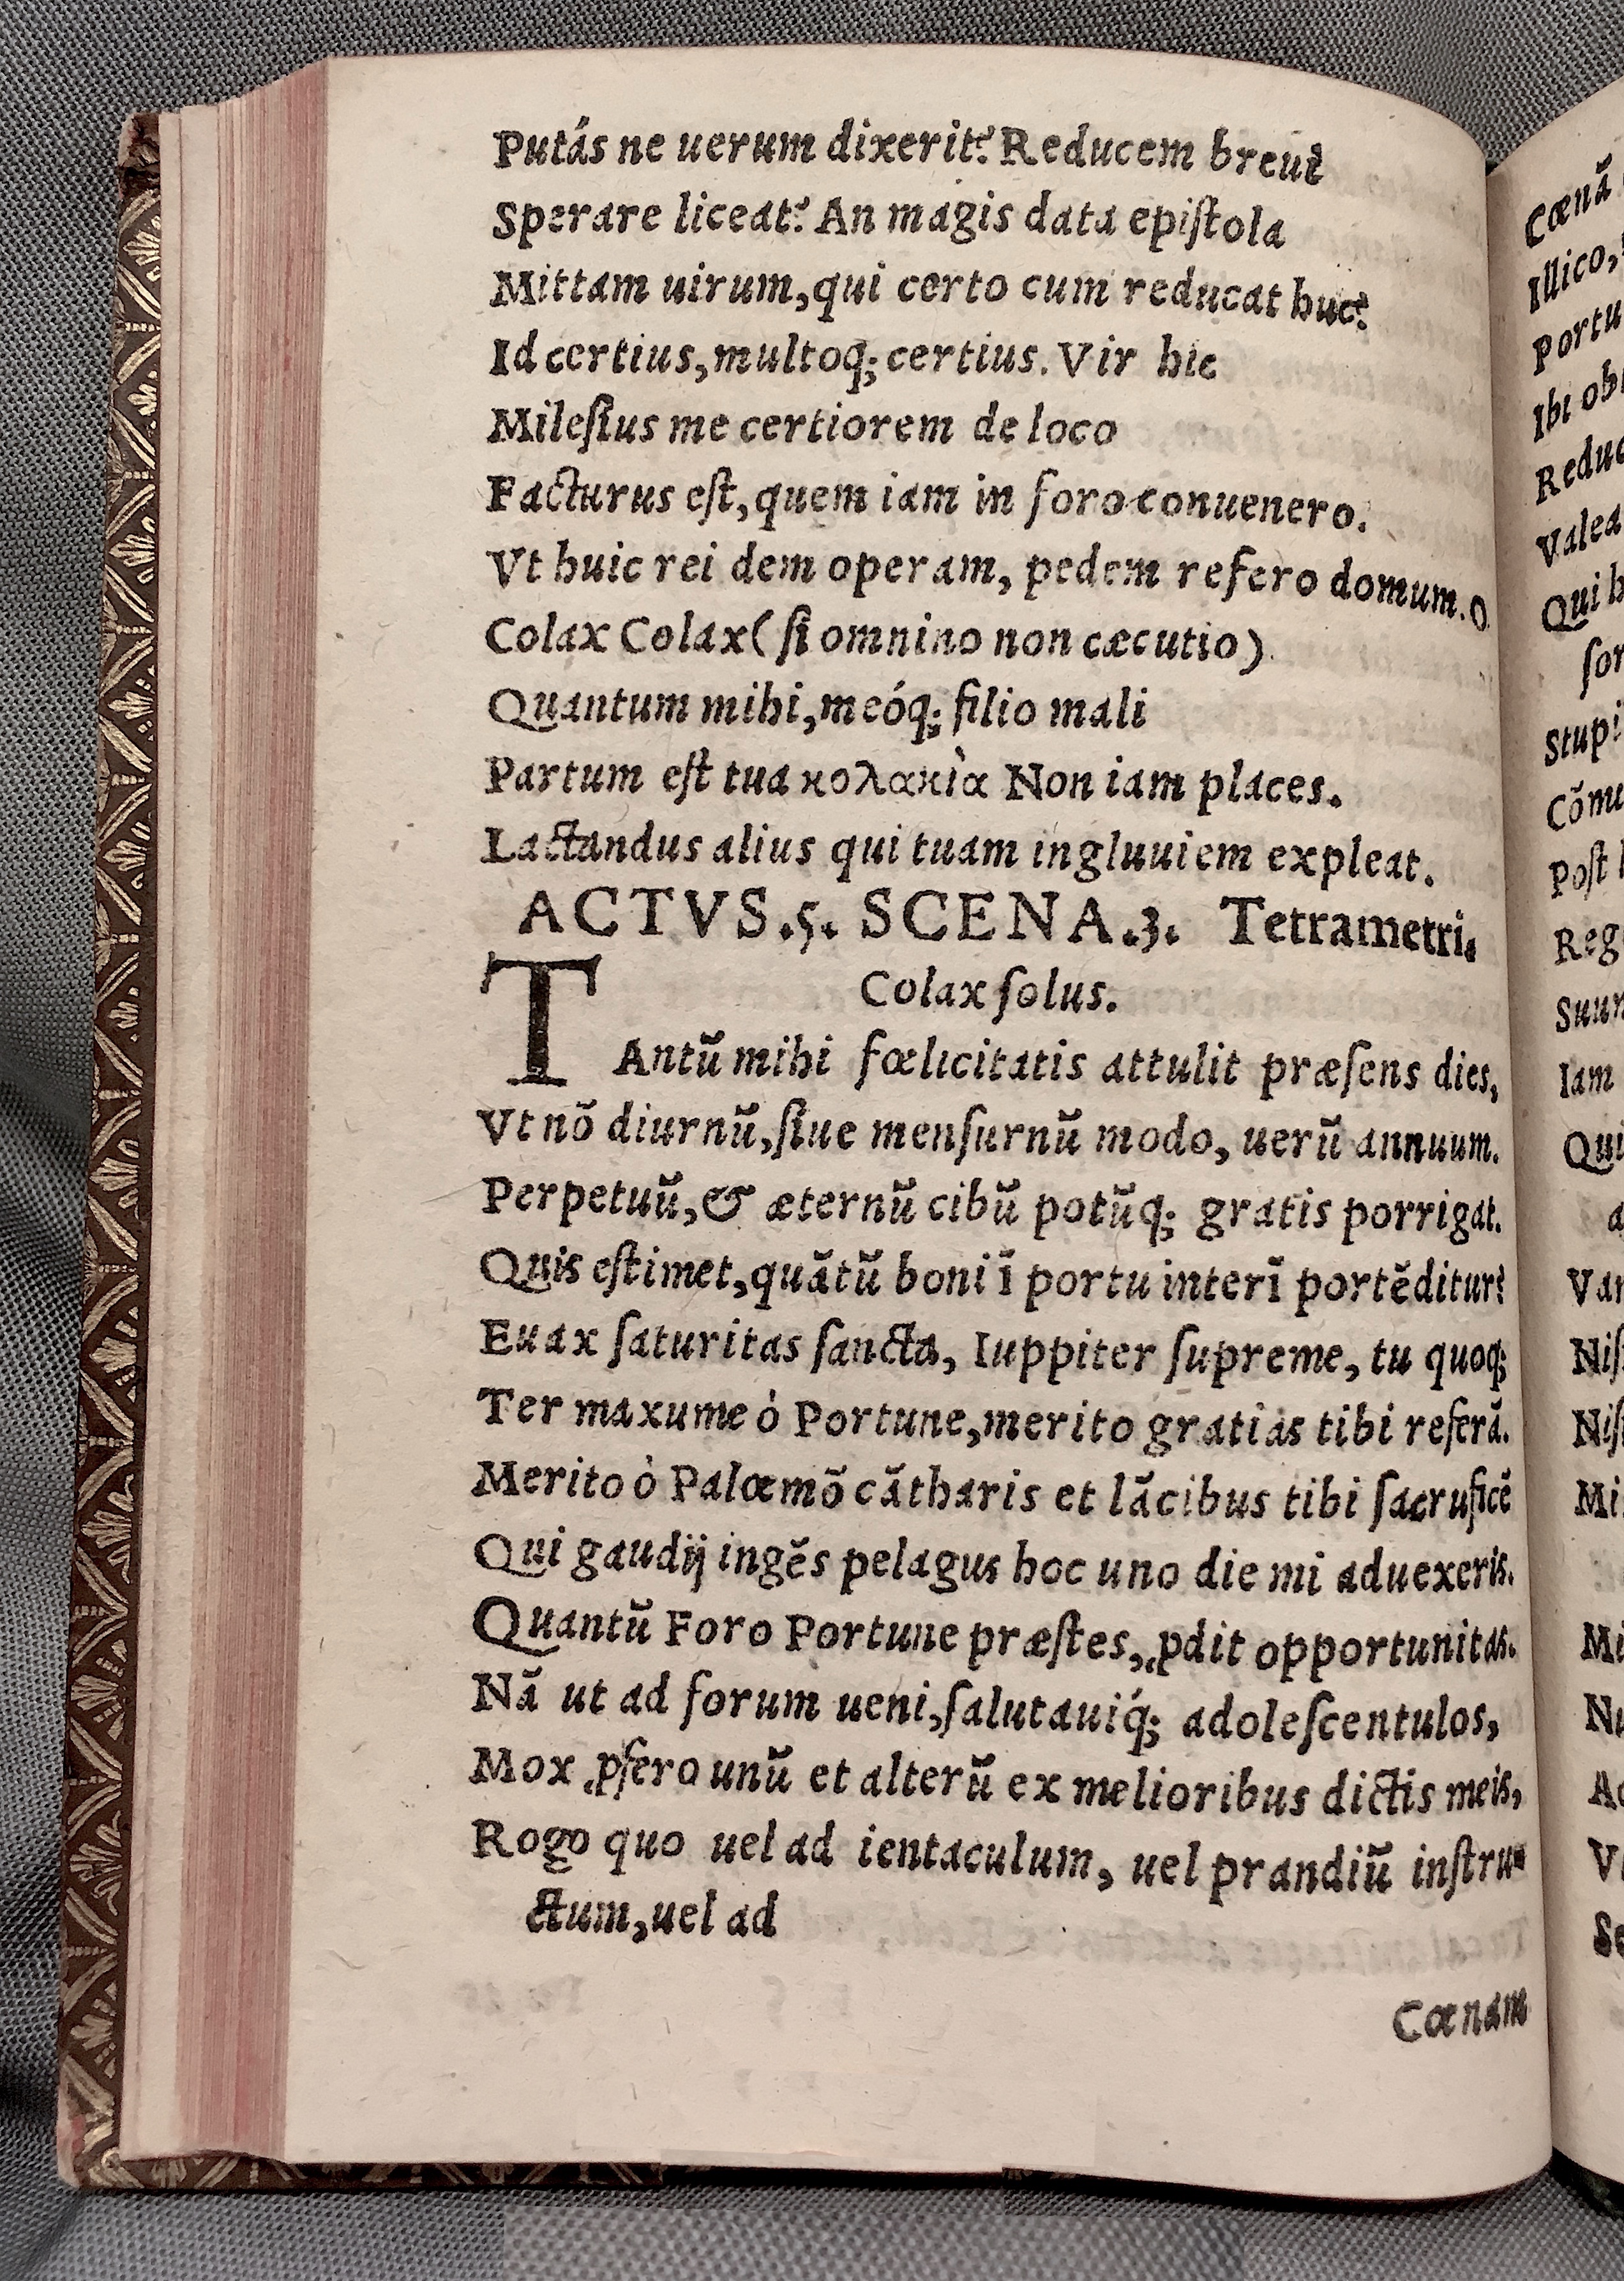 Putás ne uerum dixerit? Reducem breui
Sperare liceat? An magis data epiſtola
Mittam uirum, qui certo cum reducat huc?
Id certius, multoq; certius. Vir hic
Mileſius me certiorem de loco
Facturus eſt, quem iam in foro conuenero.
Vt huic rei dem operam, pedem refero domum. O
Colax Colax ( ſi omnino non cæcutio)
Quantum mihi, meóq; filio mali
Partum eſt tua κολακὶα Non iam places.
Lactandus alius qui tuam ingluuiem expleat.
ACTVS.5. SCENA.3. Tetrametri.
Colax ſolus.
TAntũ mihi fœlicitatis attulit præſens dies,
Vt nõ diurnũ, ſiue menſurnũ modo, uerũ annuum.
Perpetuũ, & æternũ cibũ potũq; gratis porrigat.
Quis eſtimet, quãtũ boni ĩ portu interĩ portẽditur?
Euax ſaturitas ſancta, Iuppiter ſupreme, tu quoq;
Ter maxume ò Portune, merito gratias tibi referã.
Merito ò Palœmõ cãtharis et lãcibus tibi ſacruficẽ
Qui gaudij ingẽs pelagus hoc uno die mi aduexeris.
Quantũ Foro Portune præſtes, ꝓdit opportunitas.
Nã ut ad forum ueni, ſalutauiq́; adoleſcentulos,
Mox ꝓfero unũ et alterũ ex melioribus dictis meis,
Rogo quo uel ad ientaculum, uel prandiũ inſtru-
ctum, uel ad
Cœnam
Cœnã
Illico,
Portu
Ibi ob
Reduc
Valea
Qui h
ſor
Stupi
Cõmu
Poſt
Reg
Suum
Iam
Qui
a
Var
Niſ
Niſ
Mi
Mi
Nu
Ac
V
Se